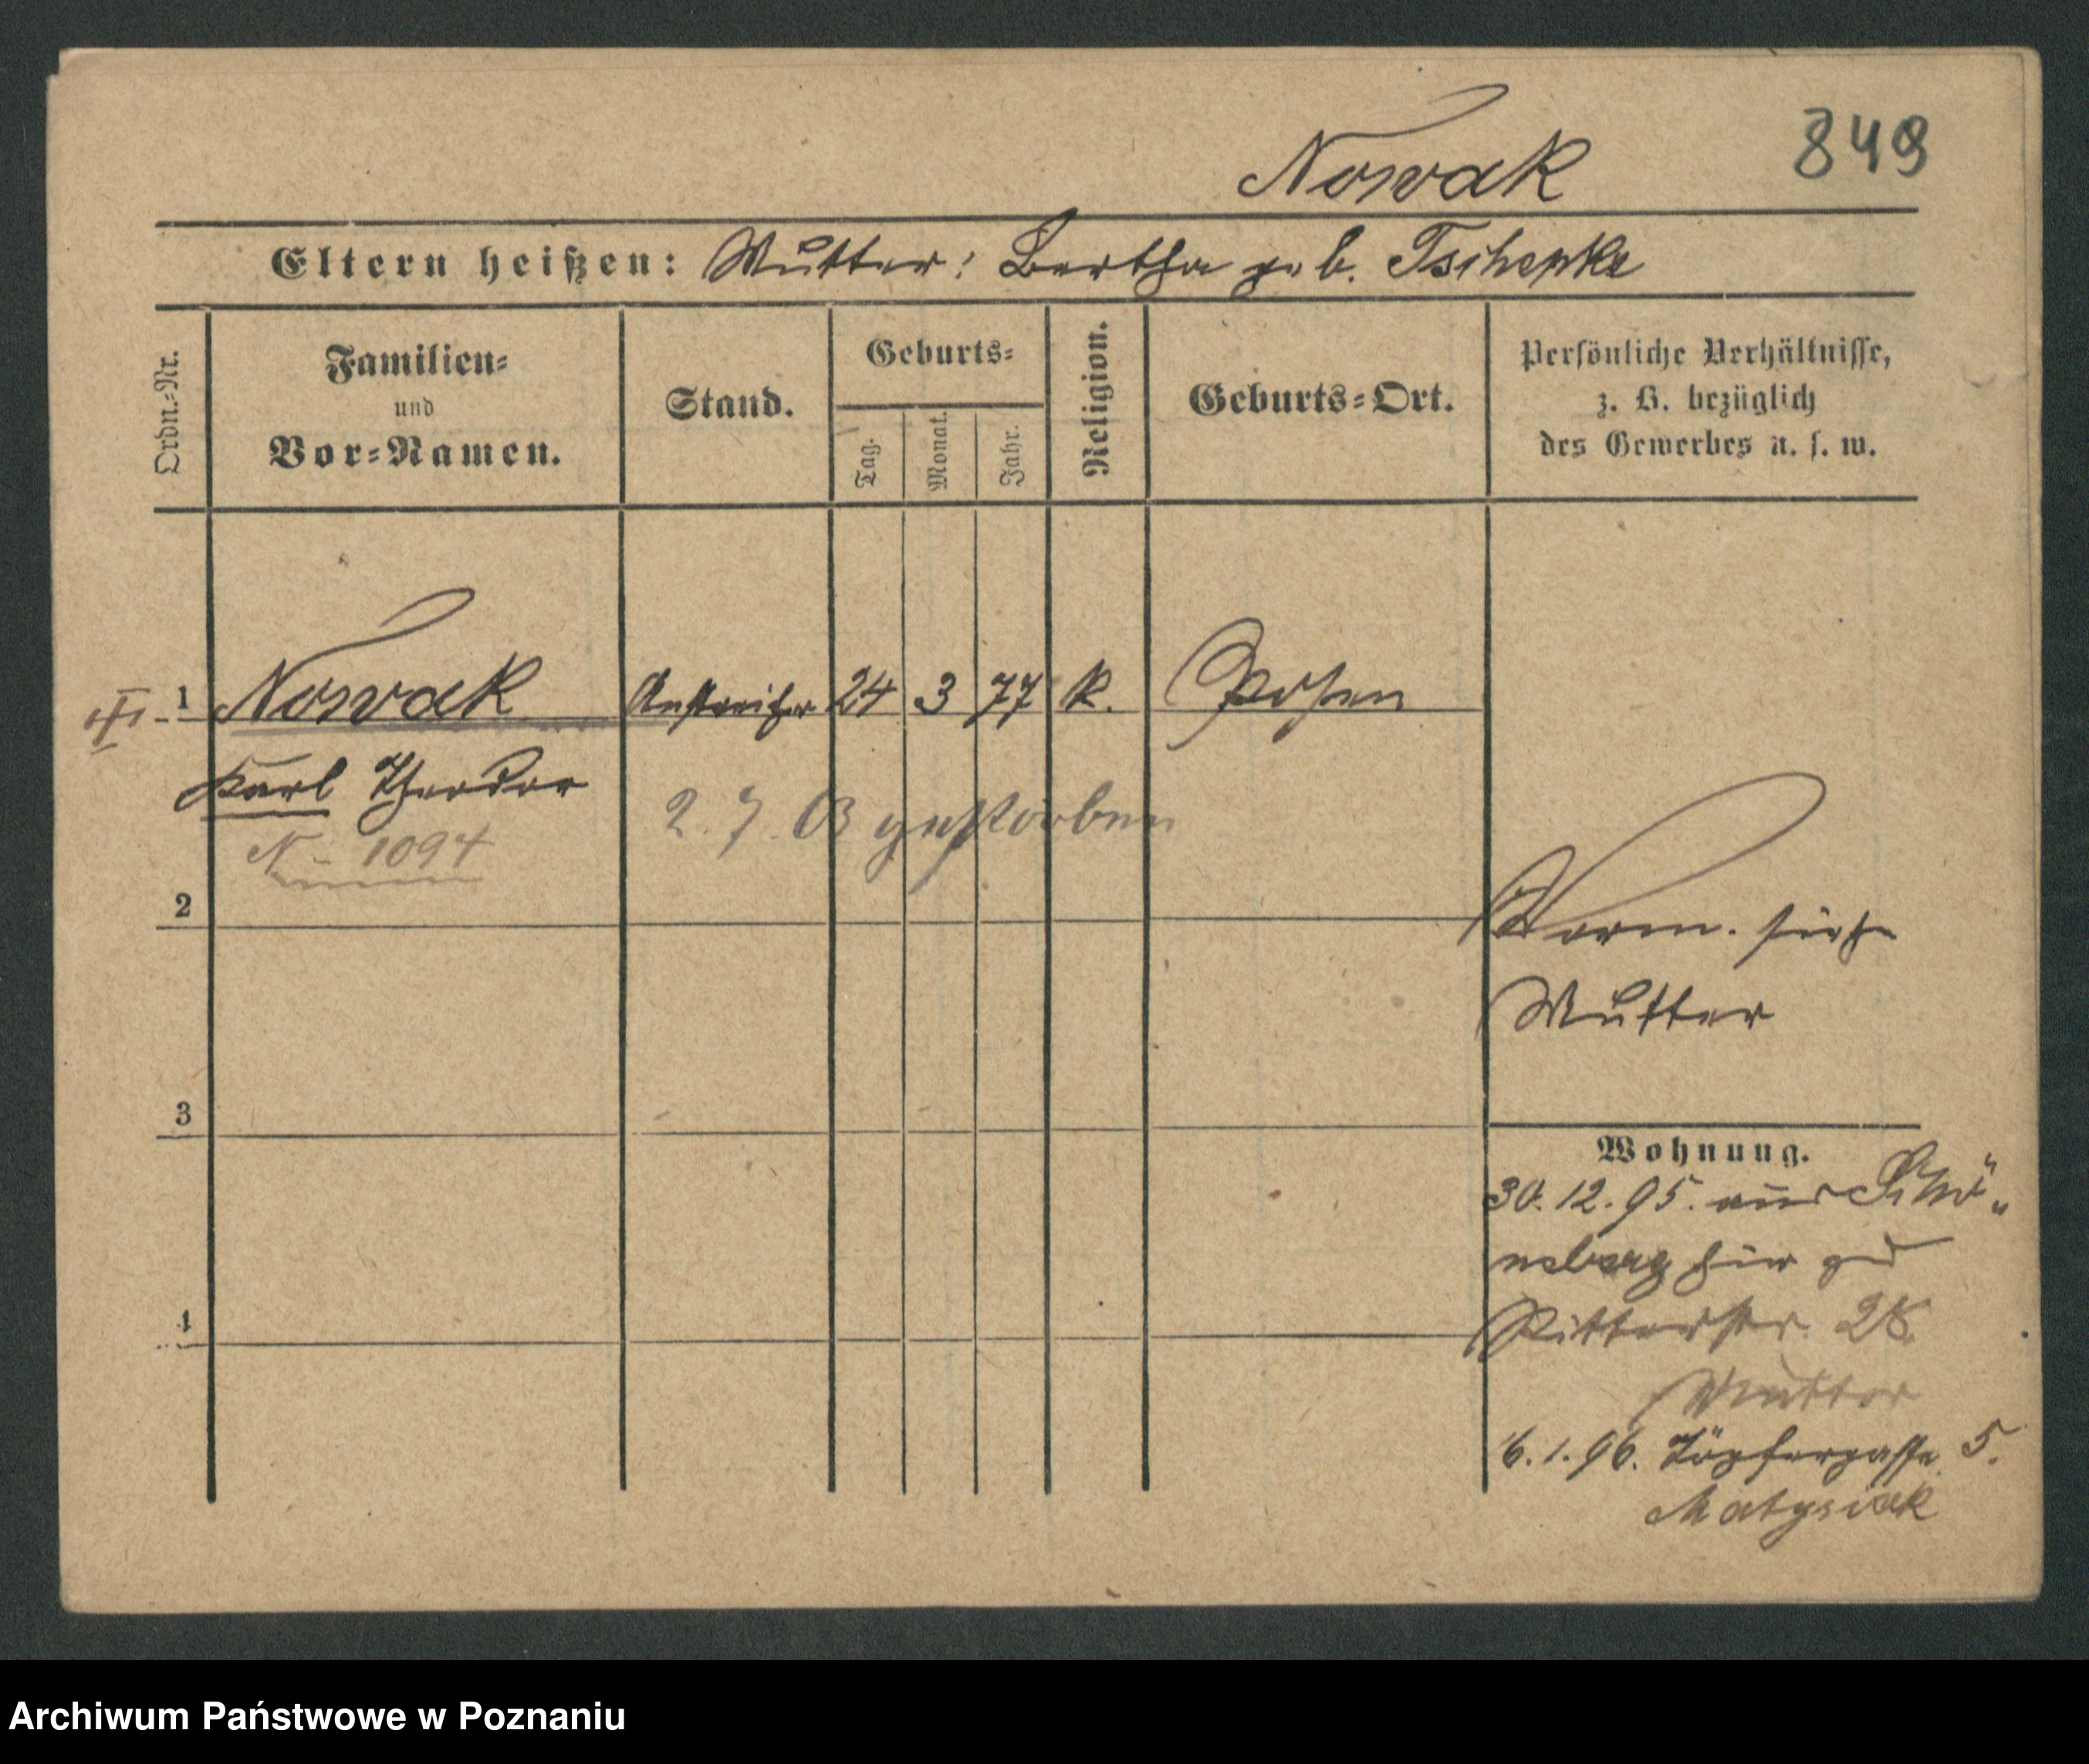 849
Nowak
Eltern heißen: Mutter: Bertha geb. Tschepke
Ordn.-Nr.
Familien-
und
Vor-Namen.
Stand.
Geburts-
Tag.
Monat.
Jahr.
Religion.
Geburts-Ort.
Persönliche Verhältnisse,
z. B. bezüglich
des Gewerbes u. s. w.
1 Nowak Anstreicher 24 3 77 K. Posen
Karl Theodor
N - 1094
2. 7. 03 gestorben
2
Vorm. siehe
Mutter
3
Wohnung.
30. 12. 95. aus Schö„
neberg hier zu
4
Ritterstr. 28.
Mutter
6. 1. 96. Töpfergasse 5.
Matysiak
Archiwum Państwowe w Poznaniu